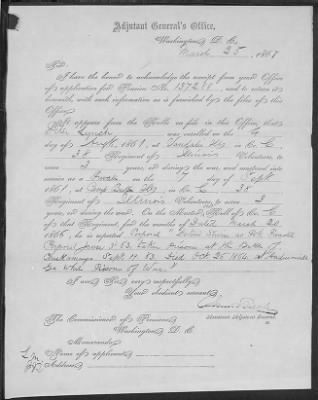 Adjutant General's Office,
Washington, D. C.,
March 25, 1867
Sir:
I have the honor to acknowledge the receipt from your Office
of application for Pension No. 137211, and to return it
herewith, with such information as is furnished by the files of this
Office.
It appears from the Rolls on file in this Office, that
Lynch was enrolled on the 9
day of Augt., 1861, at in Co. C
38 Regiment of Illinois Volunteers, to
serve 3 years, or during the war, and mustered into
service as a Private on the day of Sept
1861, at Camp Butler Ills, in Co. C, 38
Regiment of Illinois Volunteers, to serve 3
years, or during the war. On the Muster Roll of Co. C
of that Regiment, for the months of dated March 20
1866, he is reported Corporal
Corporal Jany 1 '63. taken prisoner at the Battle of
Chickamauga Sept 19 '63. Died Oct 25 1864 at Andersonville
Ga while Prisoner of War"
I am, Sir, very respectfully,
Your obedient servant,
Assistant Adjutant General
The Commissioner of Pensions,
Washington, D. C.
Memoranda:
Name of applicant
Address